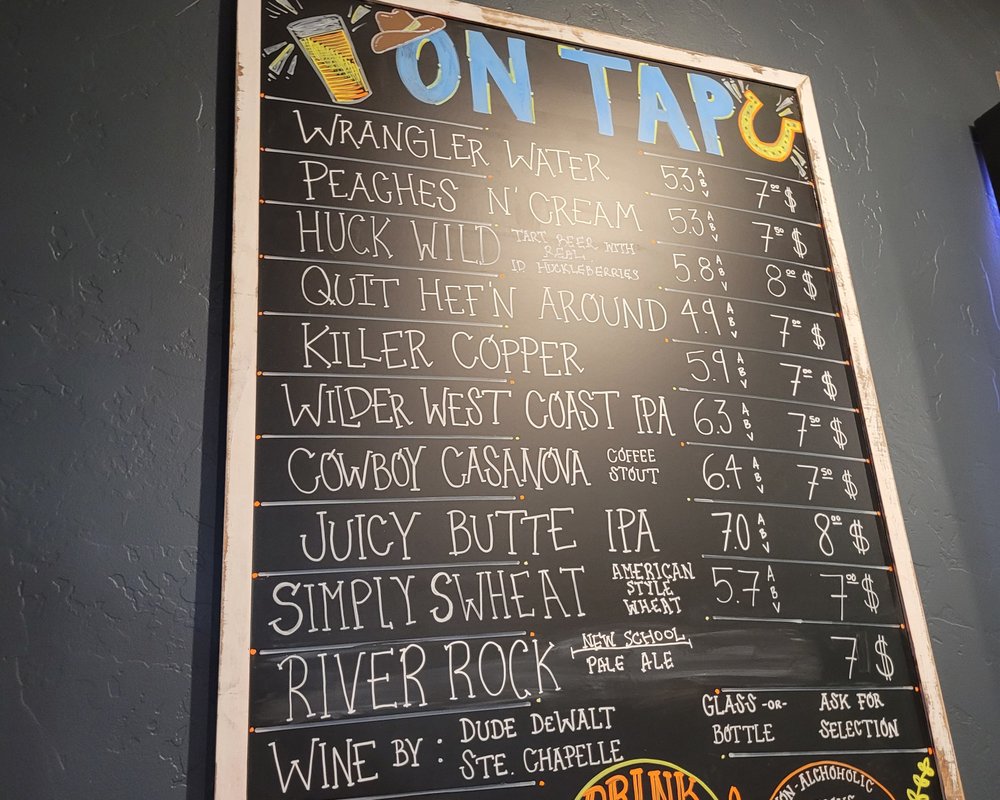 ON TAP
WRANGLER WATER 5.3 ABV 7.00 $
PEACHES N' CREAM 5.3 ABV 7.50 $
HUCK WILD TART BEER WITH REAL ID HUCKLEBERRIES 5.8 ABV 8.00 $
QUIT HEF'N AROUND 4.9 ABV 7.00 $
KILLER COPPER 5.9 ABV 7.00 $
WILDER WEST COAST IPA 6.3 ABV 7.50 $
COWBOY CASANOVA COFFEE STOUT 6.4 ABV 7.50 $
JUICY BUTTE IPA 7.0 ABV 8.00 $
SIMPLY SWHEAT AMERICAN STYLE WHEAT 5.7 ABV 7.00 $
RIVER ROCK NEW SCHOOL PALE ALE 7 $
WINE BY: DUDE DEWALT STE. CHAPELLE GLASS -OR- BOTTLE ASK FOR SELECTION
DRINK
NON-ALCHOHOLIC